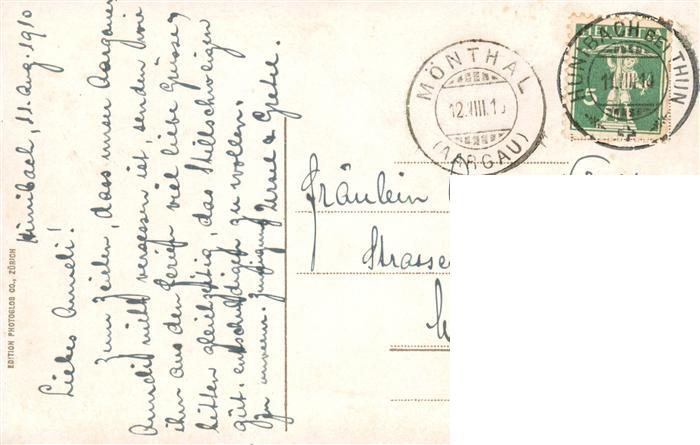 Hünibach, 11. Aug. 1910
Liebes Anneli!
Zum Zeichen, dass unser Aargauer
Anneli nicht vergessen ist, senden wir
ihm aus den Ferien viel liebe Grüsse,
bitten gleichzeitig, das Stillschweigen
güt. entschuldigen zu wollen.
Ursel & Gretel.
EDITION PHOTOGLOB CO., ZÜRICH
MÖNTHAL
12.VIII.10
(AARGAU)
HÜNIBACH BEI THUN
11.VIII.10
5
Fräulein
Strasse